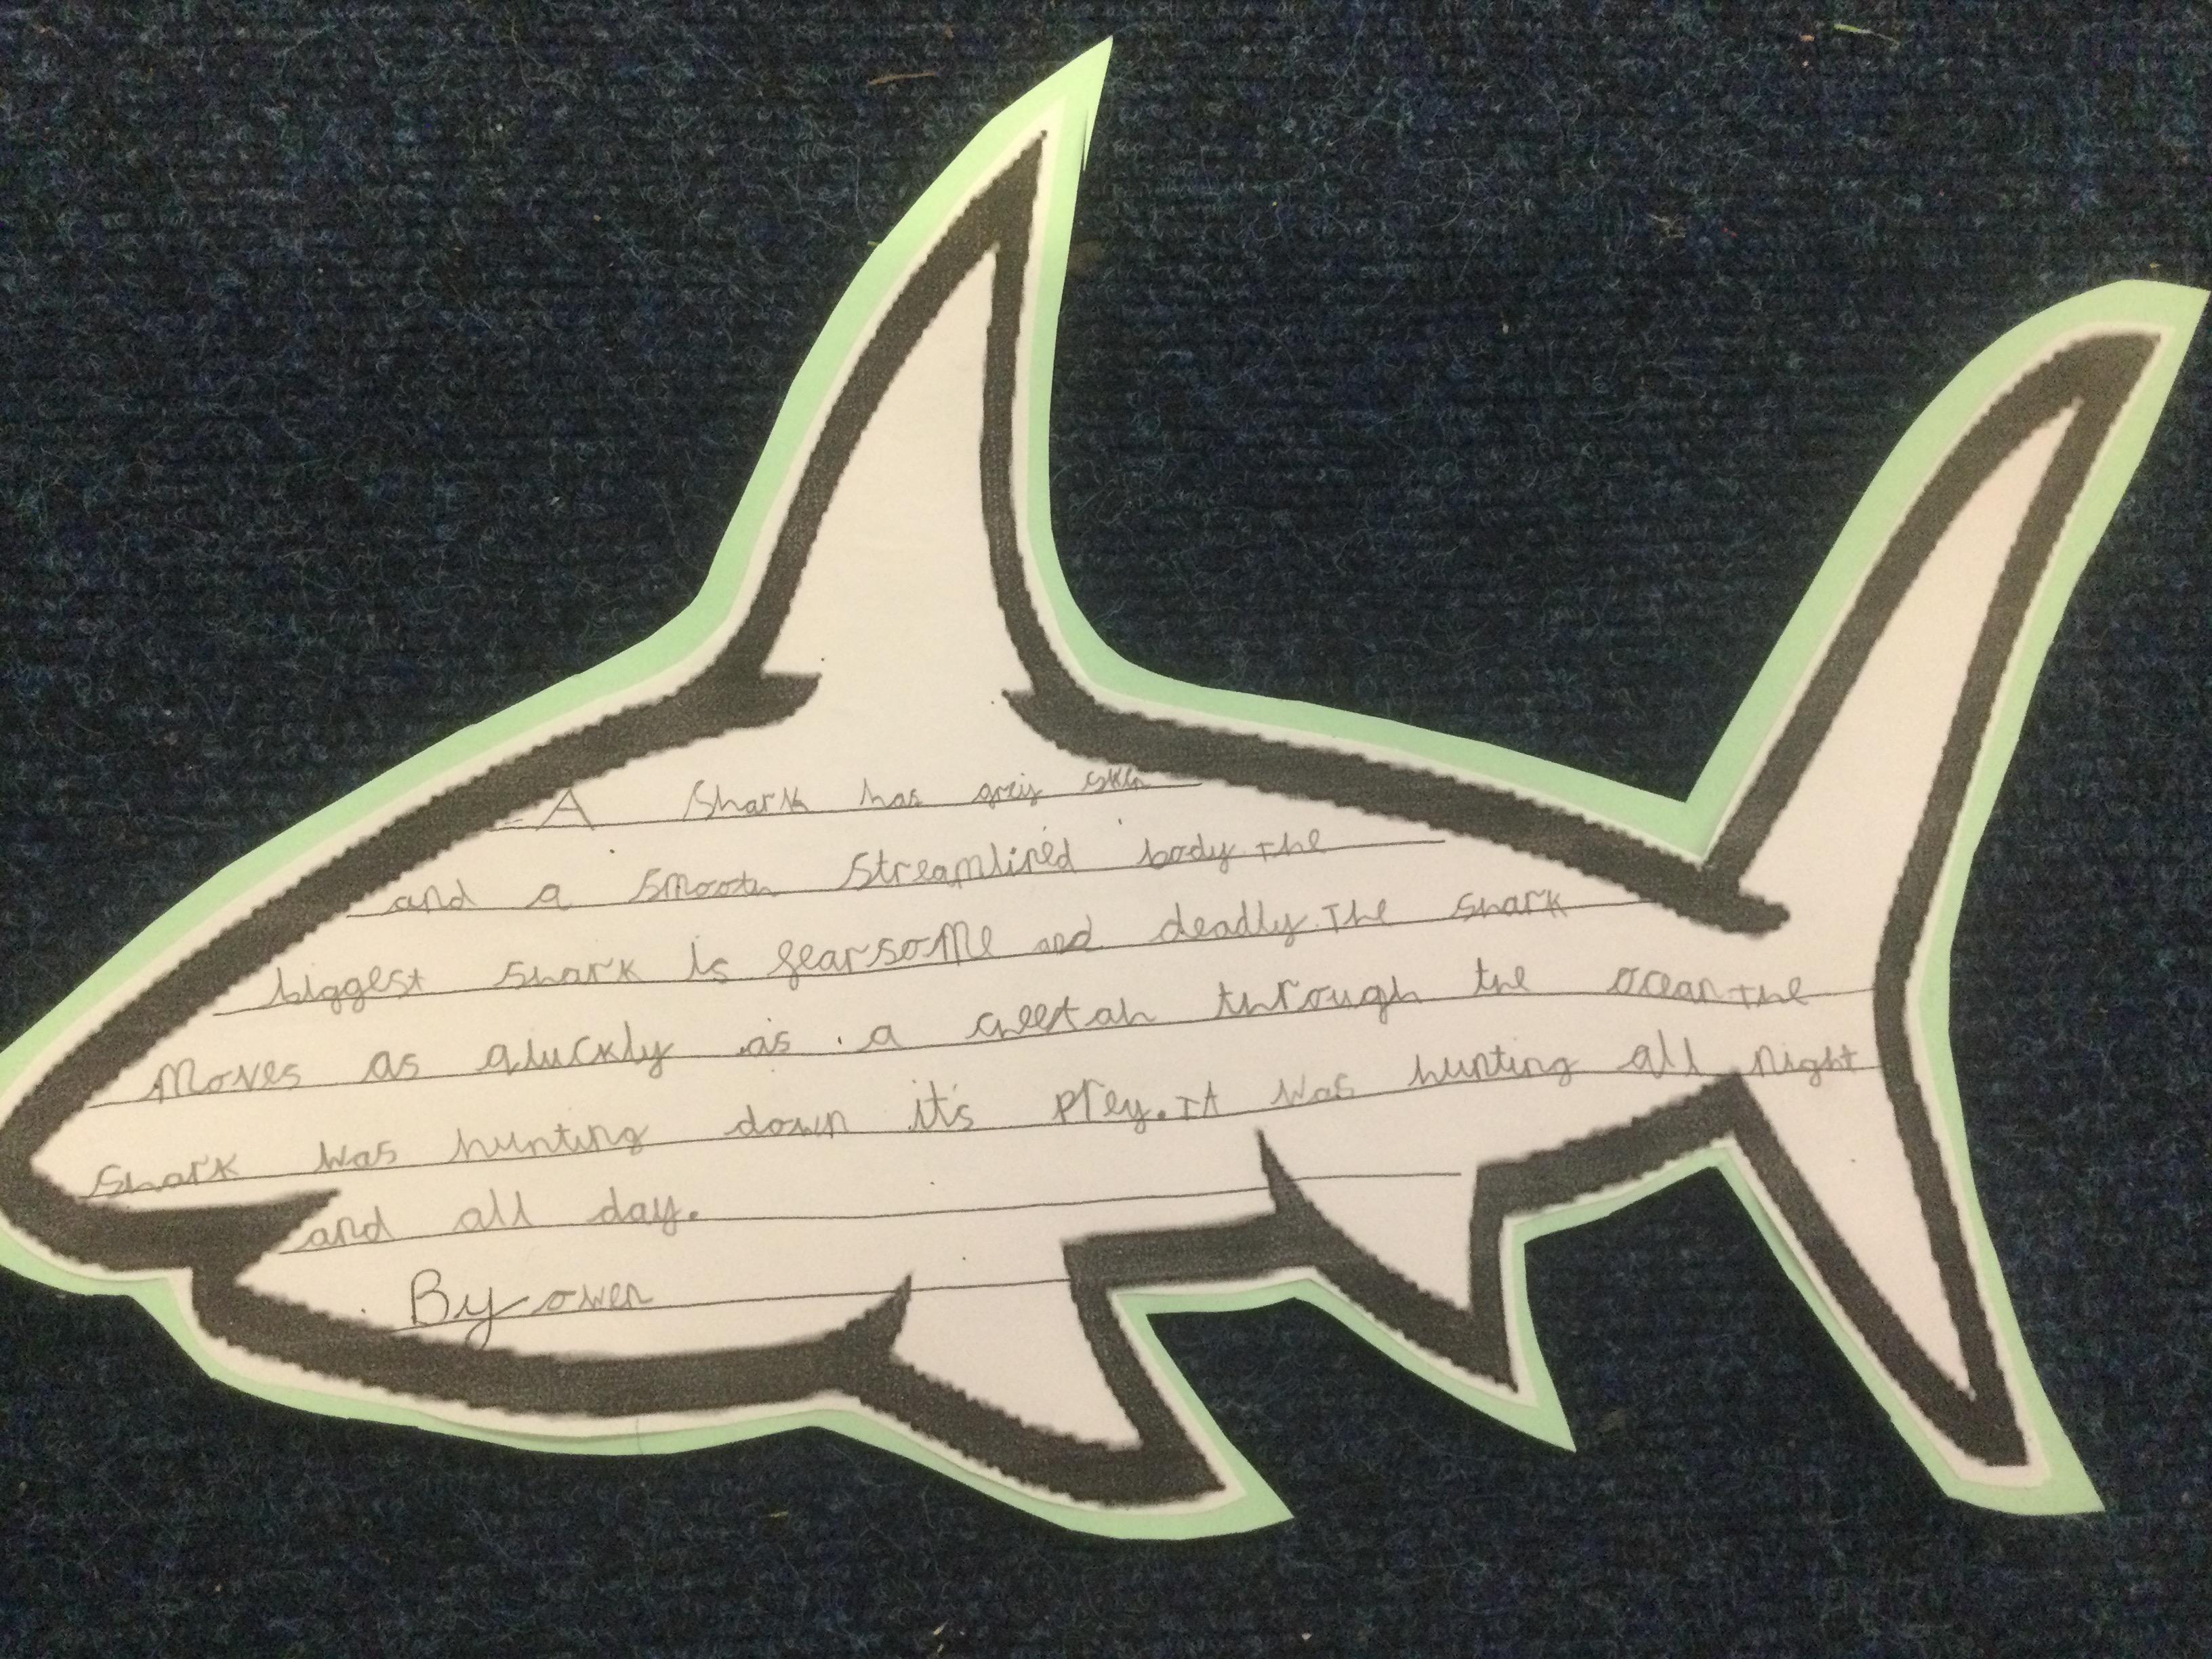 A Shark has grey skin
and a smooth streamlined body. The
biggest shark is fearsome and deadly. The shark
Moves as quickly as a cheetah through the ocean. The
shark was hunting down it's prey. It was hunting all night
and all day.
By owen